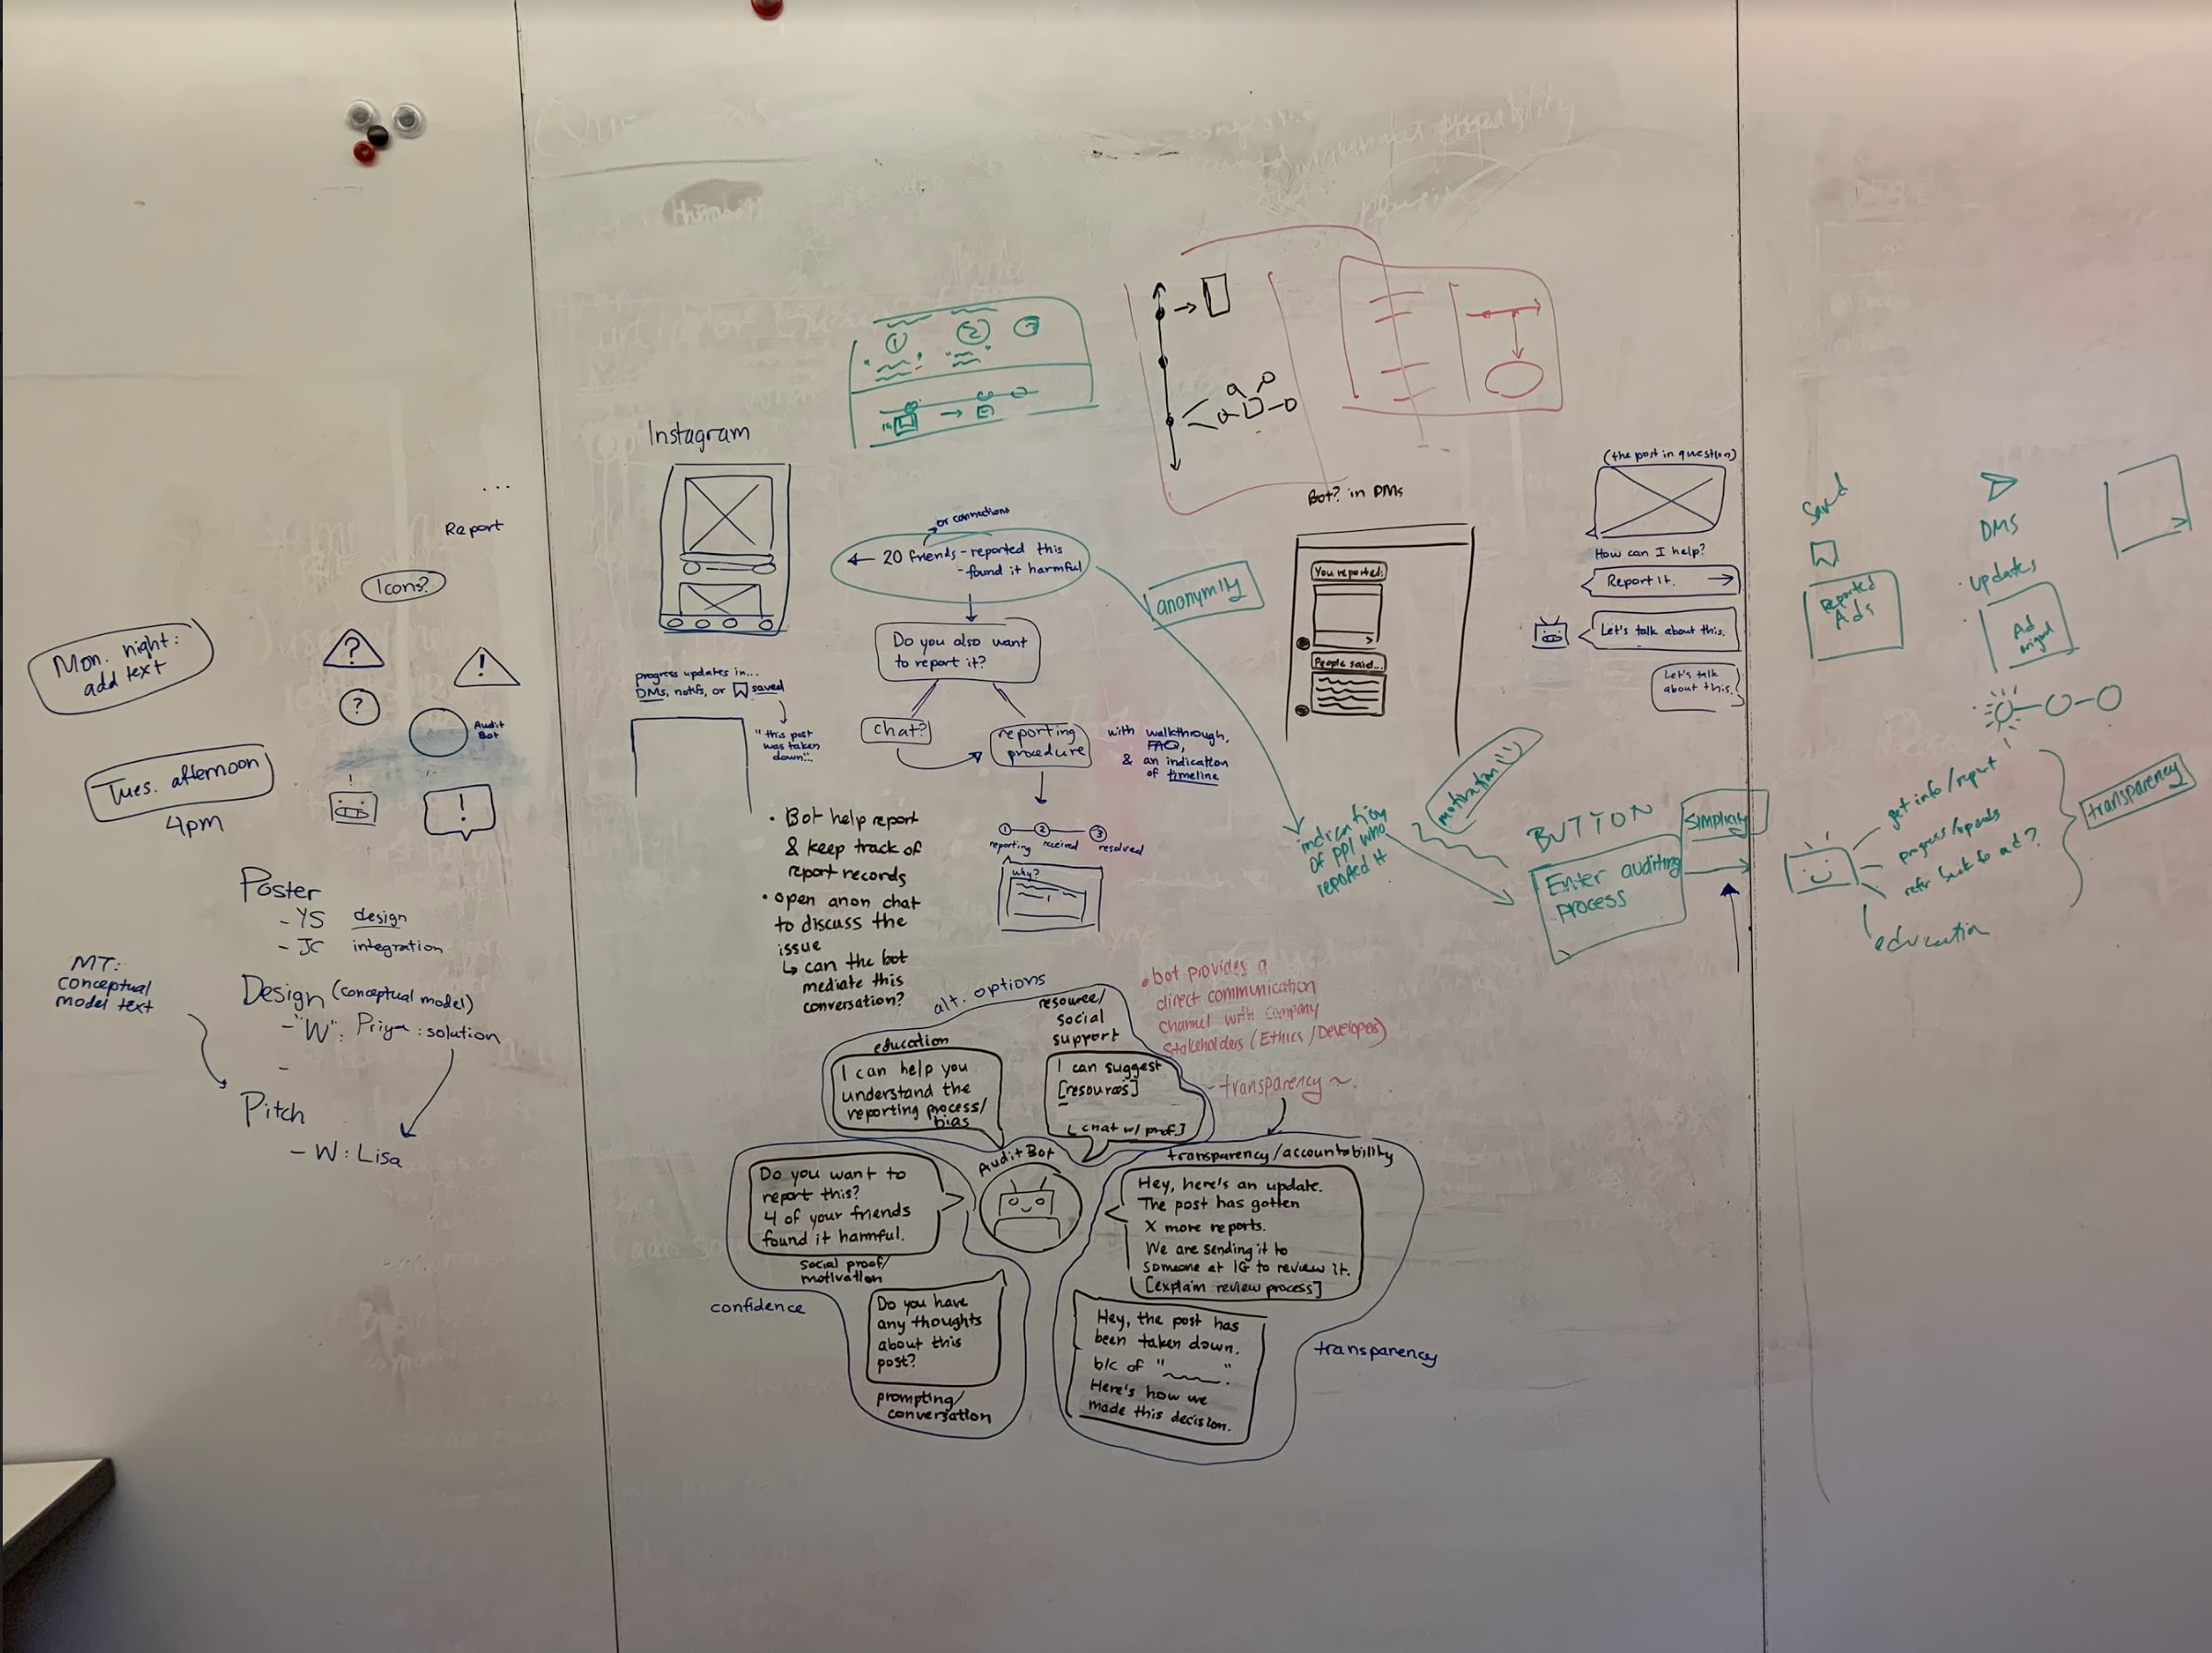 ...
Report
Icons?
?
!
?
Audit
Bot
!
Mon. night:
add text
Tues. afternoon
4pm
Poster
- YS design
- JC integration
MT:
conceptual
model text
Design (conceptual model)
- "W": Priya: solution
-
Pitch
- W: Lisa
Instagram
progress updates in...
DMs, notifs, or saved
"this post
was taken
down..."
1 2 3
or connections
← 20 friends - reported this
- found it harmful
Do you also want
to report it?
chat?
reporting
procedure
with walkthrough,
FAQ,
& an indication
of timeline
1 2 3
reporting received resolved
why?
• Bot help report
& keep track of
report records
• open anon chat
to discuss the
issue
↳ can the bot
mediate this
conversation?
anonymity
Bot? in DMs
You reported:
People said...
(the post in question)
How can I help?
Report it. →
Let's talk about this.
Let's talk
about this.
indication
of ppl who
reported it
motivation!!
BUTTON
Enter auditing
process
simplicity
Saved
Reported
Ads
DMS
• updates
Ad
get info/report
refer back to ad?
education
transparency
alt. options
education
I can help you
understand the
reporting process/
bias
resource/
social
support
I can suggest
[resources]
[chat w/ prof.]
• bot provides a
direct communication
channel with company
stakeholders (Ethics/Developers)
~ transparency ~.
Audit Bot
Do you want to
report this?
4 of your friends
found it harmful.
social proof/
motivation
confidence
Do you have
any thoughts
about this
post?
prompting/
conversation
transparency/accountability
Hey, here's an update.
The post has gotten
X more reports.
We are sending it to
someone at IG to review it.
[explain review process]
Hey, the post has
been taken down.
b/c of "____".
Here's how we
made this decision.
transparency